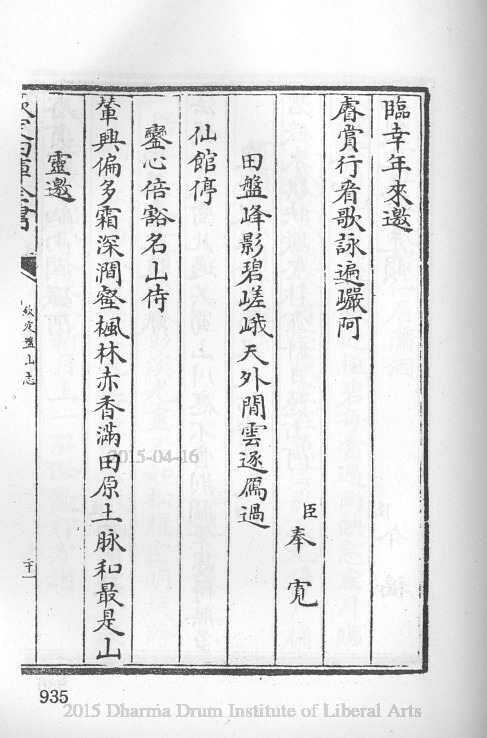 臨幸年來邀
睿賞行看歌詠遍巖阿
臣奉寛
田盤峰影碧嵯峨天外閒雲逐鴈過
仙館停
鑾心倍豁名山侍
輦興偏多霜深澗壑楓林赤香滿田原土脉和最是山
靈邀
欽定四庫全書
欽定盤山志
二十一
935
2015-04-16
2015 Dharma Drum Institute of Liberal Arts